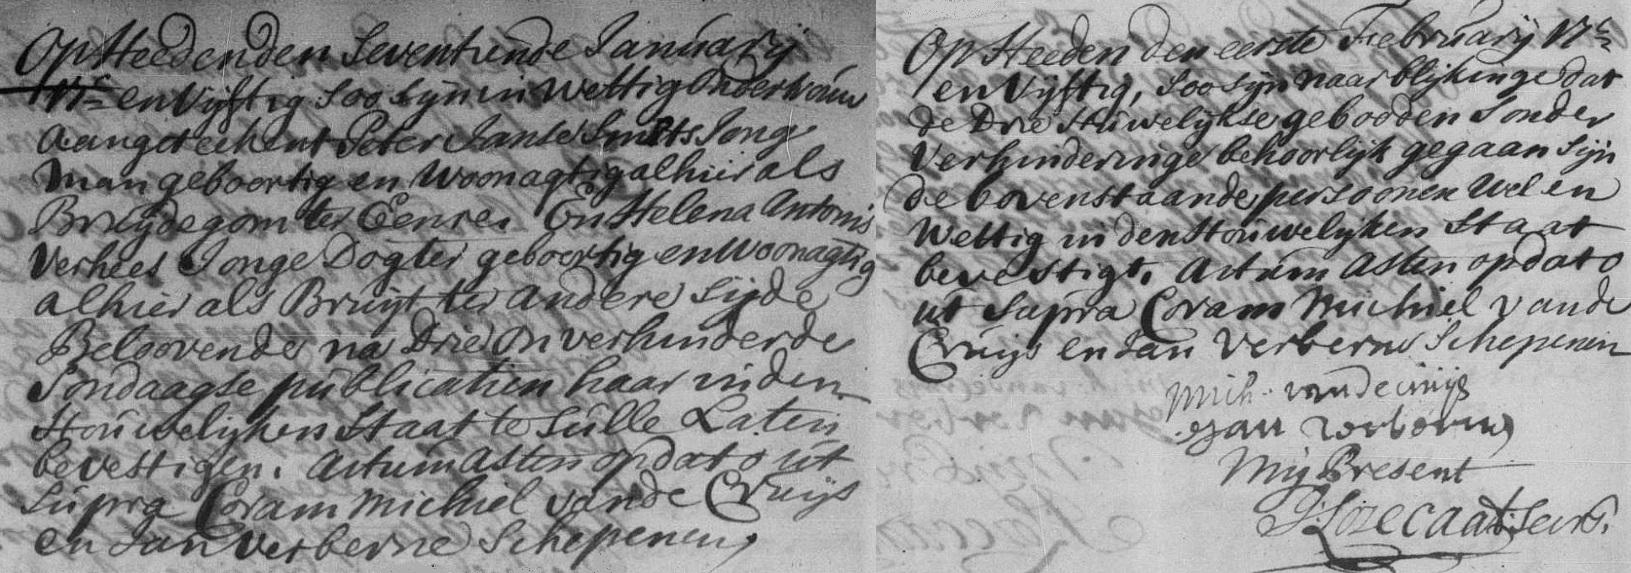 Op Heeden den Seventiende Januarij
17C en Vijftig Soo Sijn in Wettig Ondertrouw
aangeteekent Peter Janse Smits Jong
man geboortig en woonagtig alhier als
Bruydegom ter Eenre. En Helena Antonis
Verhees Jonge Dogter geboortig en Woonagtig
alhier als Bruyt ter andere Sijde
Beloovende na Drie onverhinderde
Sondaagse publicatien haar in den
Houwelijken Staat te Sulle Laten
bevestigen. Actum Asten op dato ut
Supra Coram Michiel vande Cruijs
en Jan Verberne Schepenen,
Op Heeden den eerste Februarij 17C
en Vijftig, Soo Sijn naar blijkinge dat
de Drie Houwelijkse gebodden Sonder
Verhinderinge behoorlijk gegaan Sijn
de bovenstaande persoonen Wel en
Wettig in den Houwelijken Staat
bevestigt. Actum Asten op dato
ut Supra Coram Michiel vande
Cruijs en Jan Verberne Schepenen
Mich. vande cruijs
Jan verberne
Mij Present
Secrs.